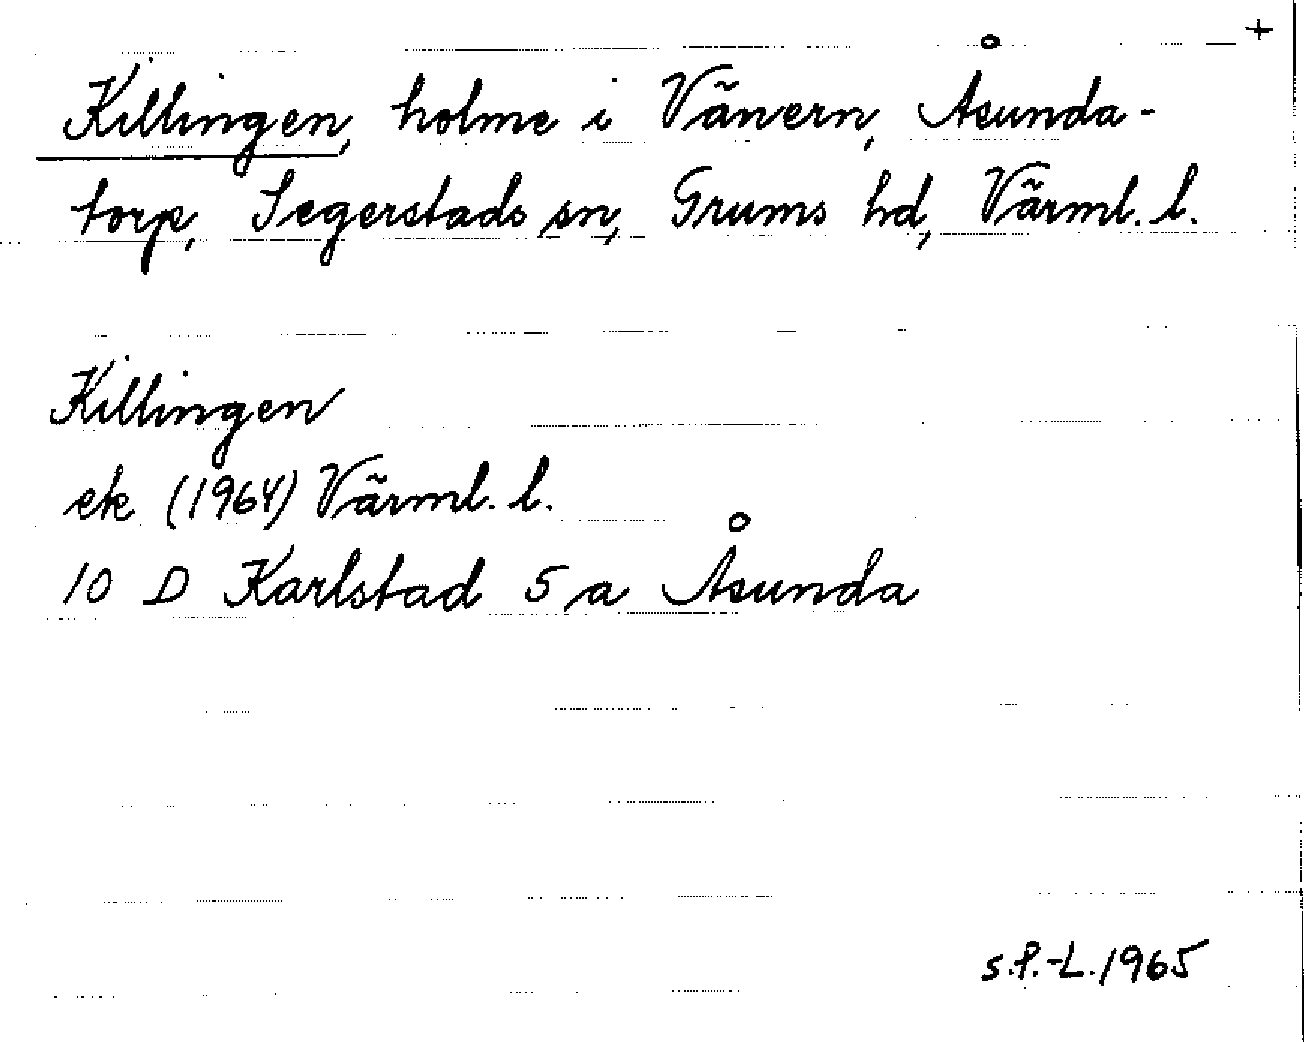 +
Killingen, holme i Vänern, Åsunda-
torp, Segerstads sn, Grums hd, Värml. l.
Killingen
ek (1964) Värml. l.
10 D Karlstad 5 a Åsunda
s.P.-L. 1965